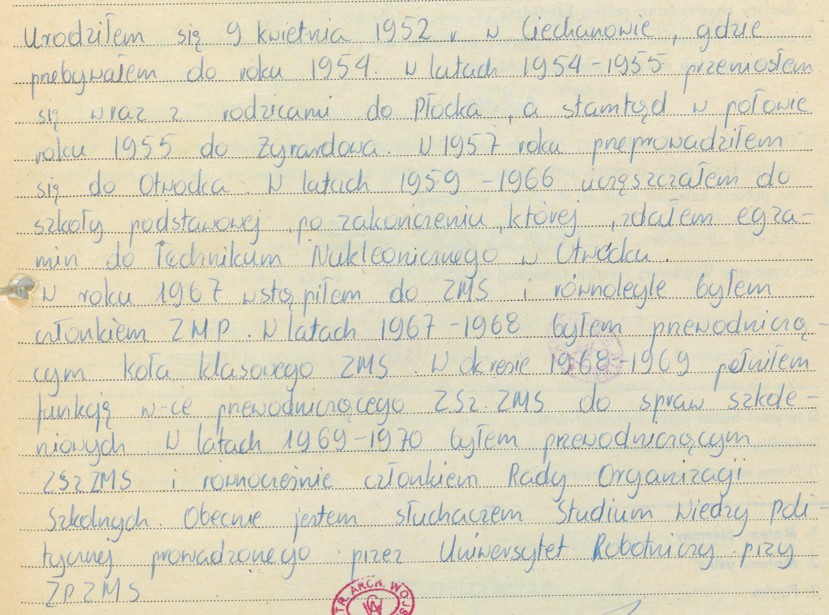 Urodziłem się 9 kwietnia 1952 r w Ciechanowie, gdzie
przebywałem do roku 1954. W latach 1954-1955 przeniosłem
się wraz z rodzicami do Płocka, a stamtąd w połowie
roku 1955 do Żyrardowa. W 1957 roku przeprowadziłem
się do Otwocka. W latach 1959-1966 uczęszczałem do
szkoły podstawowej po zakończeniu, której, zdałem egza-
min do Technikum Nukleonicznego w Otwocku.
W roku 1967 wstąpiłem do ZMS i równolegle byłem
członkiem ZMP. W latach 1967-1968 byłem przewodniczą-
cym koła klasowego ZMS. W okresie 1968-1969 pełniłem
funkcję w-ce przewodniczącego ZSZ. ZMS do spraw szkole-
niowych W latach 1969-1970 byłem przewodniczącym
ZSZ ZMS i równocześnie członkiem Rady Organizacji
Szkolnych. Obecnie jestem słuchaczem Studium Wiedzy Poli-
tycznej prowadzonego przez Uniwersytet Robotniczy przy
ZP ZMS
TR. ARCH. WOJS